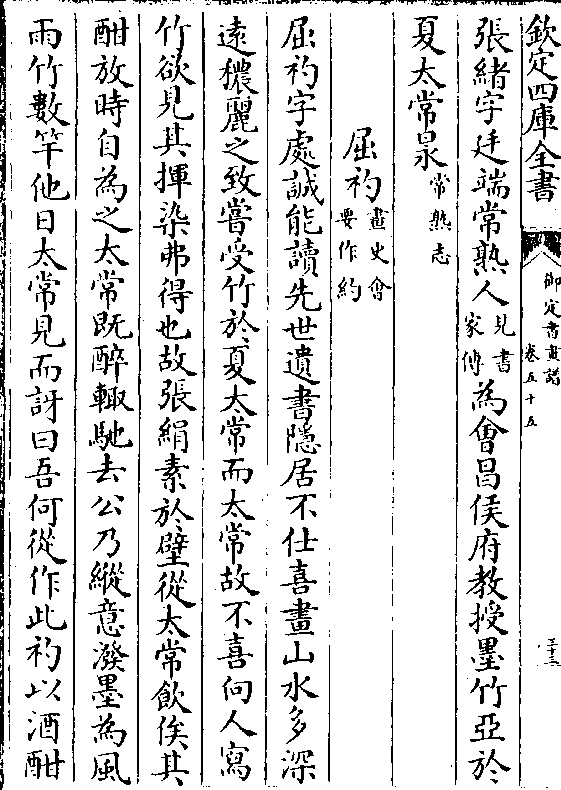 欽定四庫全書
御定書畫譜
卷五十五
三十三
張緒字廷端常熟人見書家傳為會昌侯府教授墨竹亞於
夏太常㫤常熟志
屈礿畫史會要作約
屈礿字處誠能讀先世遺書隱居不仕喜畫山水多深
遠穠麗之致嘗受竹於夏太常而太常故不喜向人寫
竹欲見其揮染弗得也故張絹素於壁從太常飲俟其
酣放時自為之太常既醉輙馳去公乃縱意潑墨為風
雨竹數竿他日太常見而訝曰吾何從作此礿以酒酣